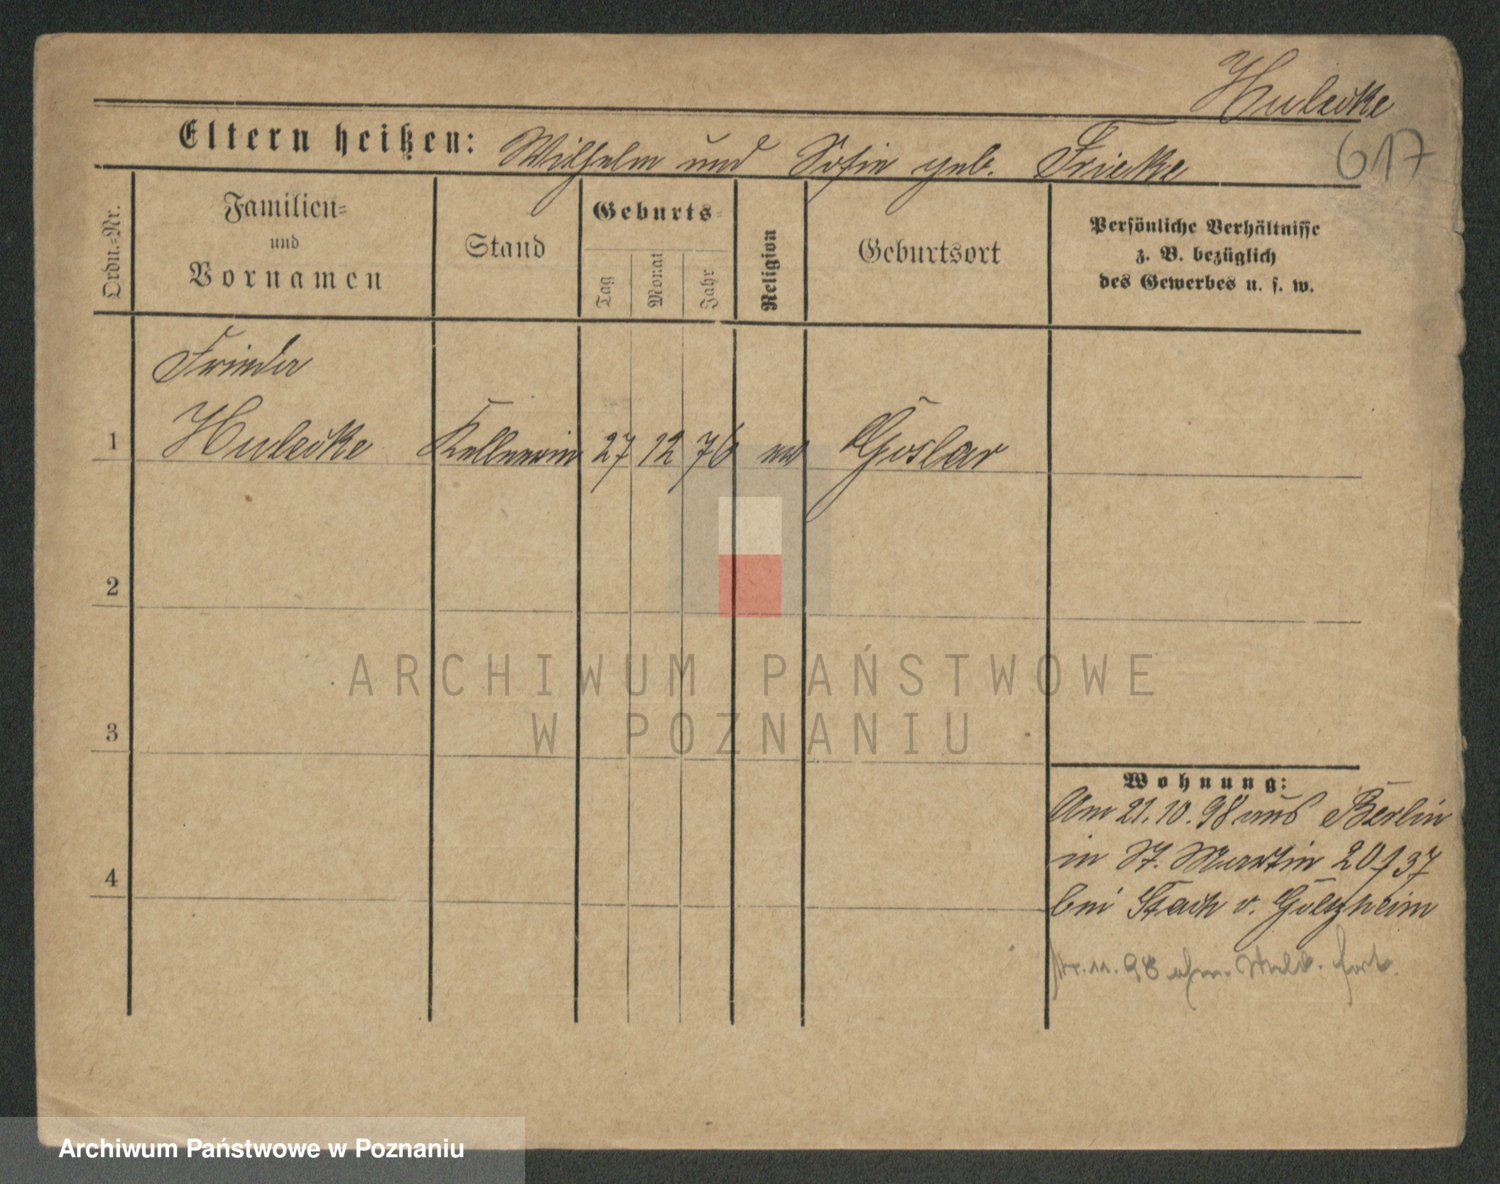 Hulecke
617
Eltern heißen: Wilhelm und Sofie geb. Fricke
Ordn.=Nr.
Familien=
und
Vornamen
Stand
Geburts=
Tag
Monat
Jahr
Religion
Geburtsort
Persönliche Verhältnisse
z. B. bezüglich
des Gewerbes u. s. w.
Frieda
1 Hulecke Kellnerin 27 12 76 ev Goslar
2
3
4
Wohnung:
Am 21.10.98 aus Berlin
in St. Martin 20/37
bei Stach v. Goltzheim
11. 98 ohne Meld. fort.
ARCHIWUM PAŃSTWOWE
W POZNANIU
Archiwum Państwowe w Poznaniu